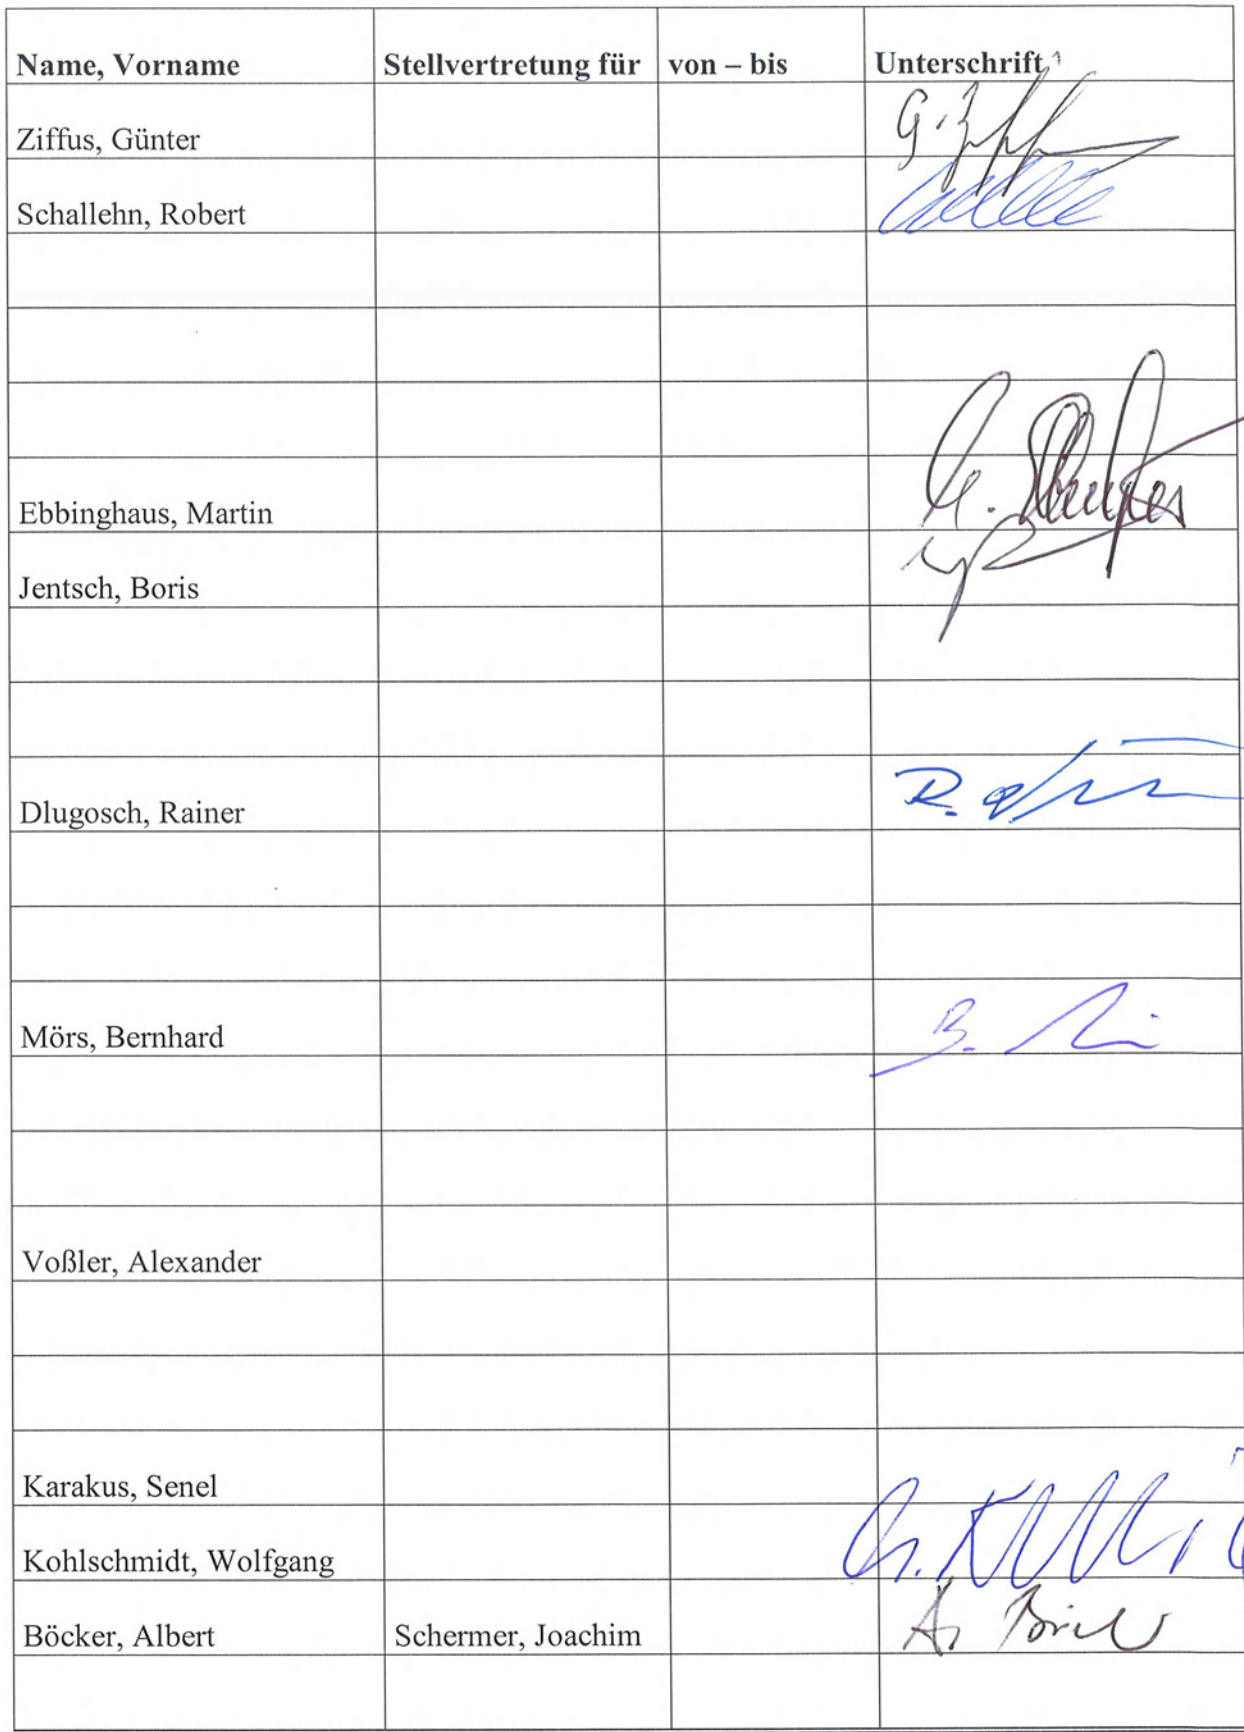 Name, Vorname Stellvertretung für von – bis Unterschrift
Ziffus, Günter
Schallehn, Robert
Ebbinghaus, Martin
Jentsch, Boris
Dlugosch, Rainer
Mörs, Bernhard
Voßler, Alexander
Karakus, Senel
Kohlschmidt, Wolfgang
Böcker, Albert Schermer, Joachim